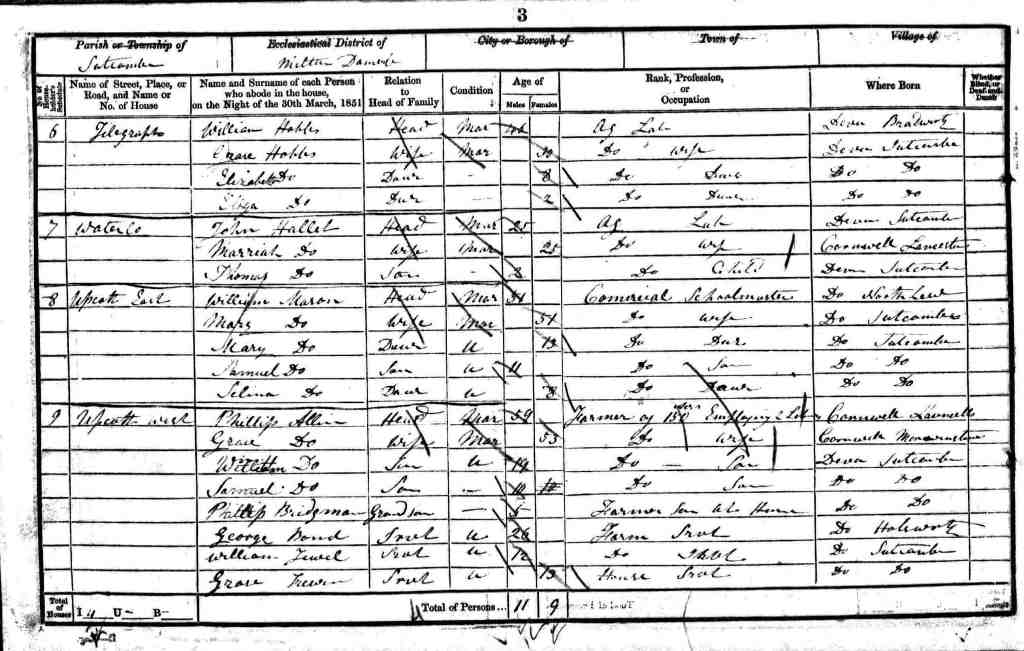 3
Parish or Township of Ecclesiastical District of City or Borough of Town of Village of
Sutcombe Milton Damerel
No. of House-holder's Schedule Name of Street, Place, or Road, and Name or No. of House Name and Surname of each Person who abode in the house, on the Night of the 30th March, 1851 Relation to Head of Family Condition Age of Males Females Rank, Profession, or Occupation Where Born Whether Blind, or Deaf-and-Dumb
6 Telegraph William Hobbs Head Mar Ag Lab Devon
Grace Hobbs Wife Mar Do wife Devon Sutcombe
Elizabeth Do Daur 8 Do Do Do
Eliza Do Daur 2 Do Daur Do Do
7 Waterlo John Hallet Head Mar 25 Ag Lab Devon Sutcombe
Marriah Do Wife Mar 25 Do wife Cornwell
Thomas Do Son - Do Child Devon Sutcombe
8 Upcott East William Mason Head Mar 51 Comercial Schoolmaster Do North Lew
Mary Do Wife Mar 51 Do wife Do Sutcombe
Mary Do Daur U 13 Do Daur Do Sutcombe
Samuel Do Son U 11 Do Son Do Do
Selina Do Daur U 8 Do Daur Do Do
9 Upcott west Phillip Allin Head Mar 59 Farmer of 150 Employing 2 Lab Cornwell
Grace Do Wife Mar 53 Do wife Cornwell
William Do Son U 19 Do - Son Devon Sutcombe
Samuel Do Son - Do Son Do Do
Phillip Bridgman Grandson - 5 Farmer Son at Home Do Do
George Bond Srvt U 26 Farm Srvt Do
William Jewell Srvt U 12 Do Srvt Do Sutcombe
Grace Srvt U 13 House Srvt Do Do
Total of Houses I 4 U- B- Total of Persons... 11 9